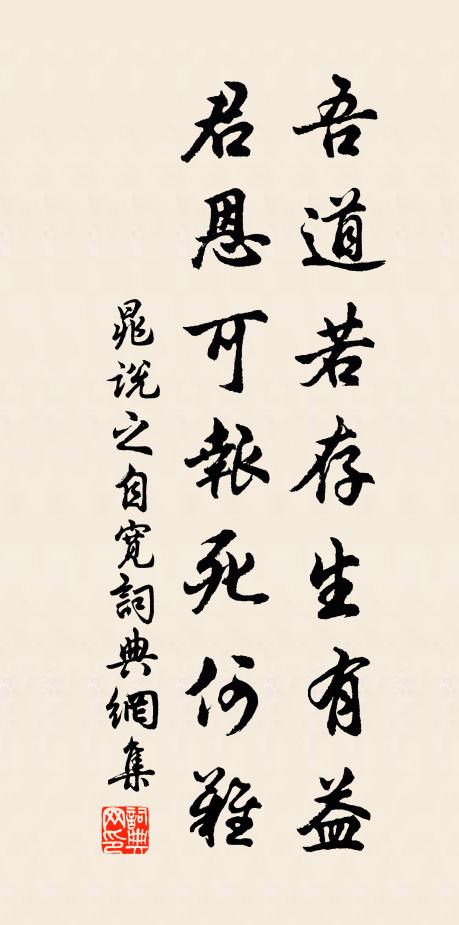 吾道若存生有益
君恩可報死何難
晁說之自寬詞典網集
詞典網印